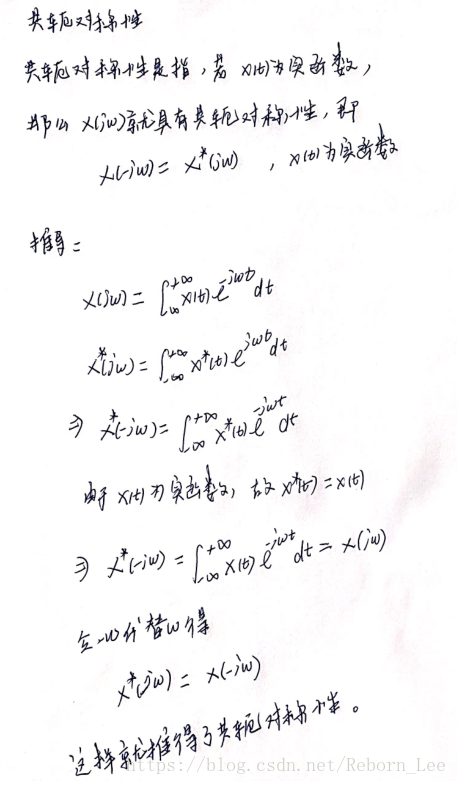 共轭对称性
共轭对称性是指，若 x(t)为实函数，
那么 X(jω)就具有共轭对称性，即
X(-jω) = X*(jω) ，x(t)为实函数
推导：
X(jω) = ∫_{-∞}^{+∞} x(t) e^{-jωt} dt
X*(jω) = ∫_{-∞}^{+∞} x*(t) e^{jωt} dt
⇒ X*(-jω) = ∫_{-∞}^{+∞} x*(t) e^{-jωt} dt
由于 x(t)为实函数，故 x*(t) = x(t)
⇒ X*(-jω) = ∫_{-∞}^{+∞} x(t) e^{-jωt} dt = X(jω)
令-ω代替ω得
X*(jω) = X(-jω)
这样就推得了共轭对称性。
https://blog.csdn.net/Reborn_Lee